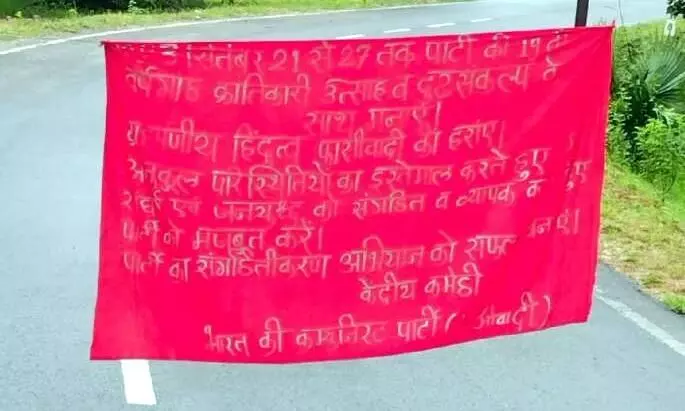 सितंबर 21 से 27 तक पार्टी की 19 वीं
वर्षगांठ क्रांतिकारी उत्साह व दृढ़संकल्प के
साथ मनाएं।
हिंदुत्व फासीवादी को हराएं।
अनुकूल परिस्थितियों का इस्तेमाल करते हुए
एवं जनयुद्ध को संगठित व व्यापक हुए
पार्टी को मजबूत करें।
पार्टी का संगठितीकरण अभियान को सफल
केंद्रीय कमेटी
भारत की कम्युनिस्ट पार्टी (